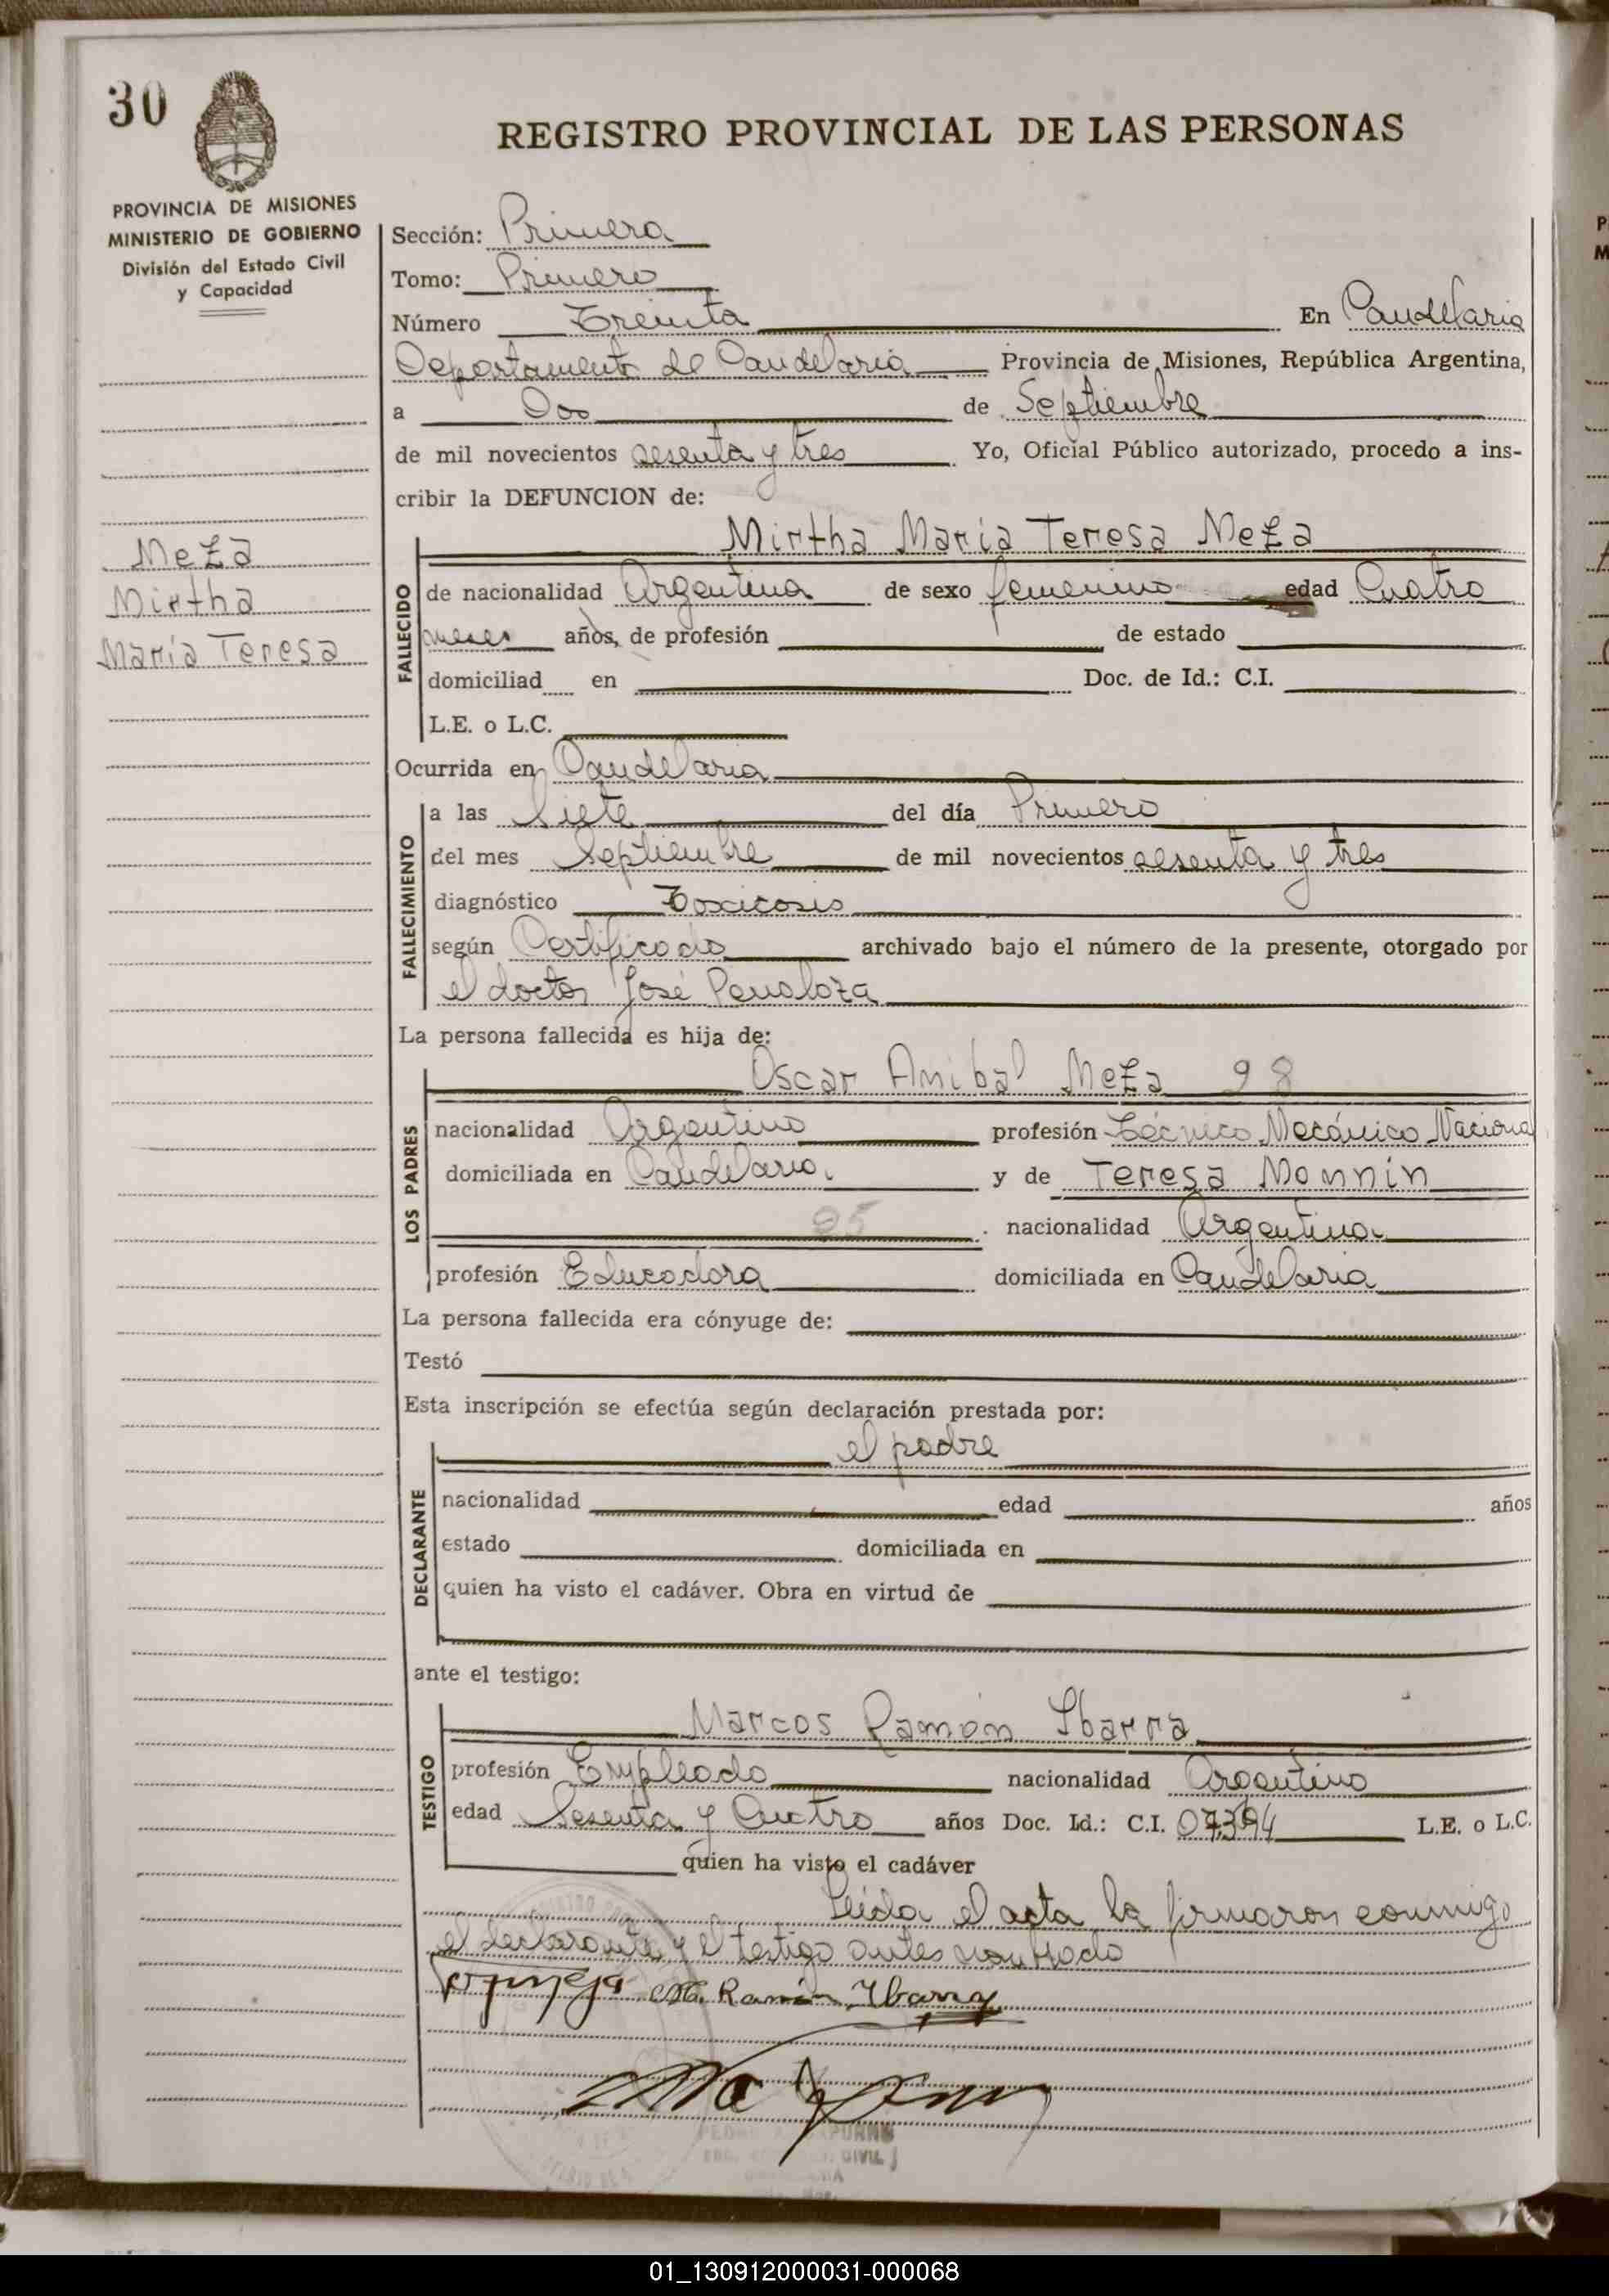 30
REGISTRO PROVINCIAL DE LAS PERSONAS
PROVINCIA DE MISIONES
MINISTERIO DE GOBIERNO
División del Estado Civil
y Capacidad
Sección: Primera
Tomo: Primero
Número Treinta En Candelaria
Departamento de Candelaria Provincia de Misiones, República Argentina,
a Dos de Septiembre
de mil novecientos sesenta y tres Yo, Oficial Público autorizado, procedo a ins-
cribir la DEFUNCION de:
Meza
Mirtha
María Teresa
FALLECIDO
Mirtha María Teresa Meza
de nacionalidad Argentina de sexo femenino edad Cuatro
meses años, de profesión de estado
domiciliad en Doc. de Id.: C.I.
L.E. o L.C.
Ocurrida en Candelaria
FALLECIMIENTO
a las Siete del día Primero
del mes Septiembre de mil novecientos sesenta y tres
diagnóstico Toxicosis
según Certificado archivado bajo el número de la presente, otorgado por
el doctor José Penaloza
La persona fallecida es hija de:
LOS PADRES
Oscar Anibal Meza 98
nacionalidad Argentino profesión Técnico Mecánico Nacional
domiciliada en Candelaria y de Teresa Monnin
95 nacionalidad Argentina
profesión Educadora domiciliada en Candelaria
La persona fallecida era cónyuge de:
Testó
Esta inscripción se efectúa según declaración prestada por:
DECLARANTE
el padre
nacionalidad edad años
estado domiciliada en
quien ha visto el cadáver. Obra en virtud de
ante el testigo:
TESTIGO
Marcos Ramón Ibarra
profesión Empleado nacionalidad Argentino
edad Sesenta y Cuatro años Doc. Id.: C.I. 07.394 L.E. o L.C.
quien ha visto el cadáver
Leida el acta la firmaron conmigo
el declarante y el testigo antes nombrado
M. Ramón Ibarra
01_130912000031-000068